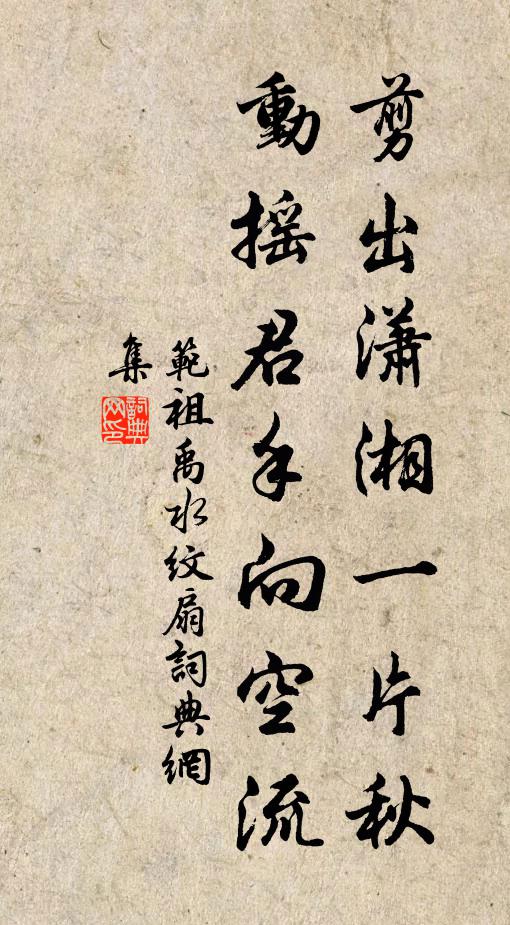 剪出瀟湘一片秋
動摇君手向空流
範祖禹水纹扇詞典網
集
詞典
网印